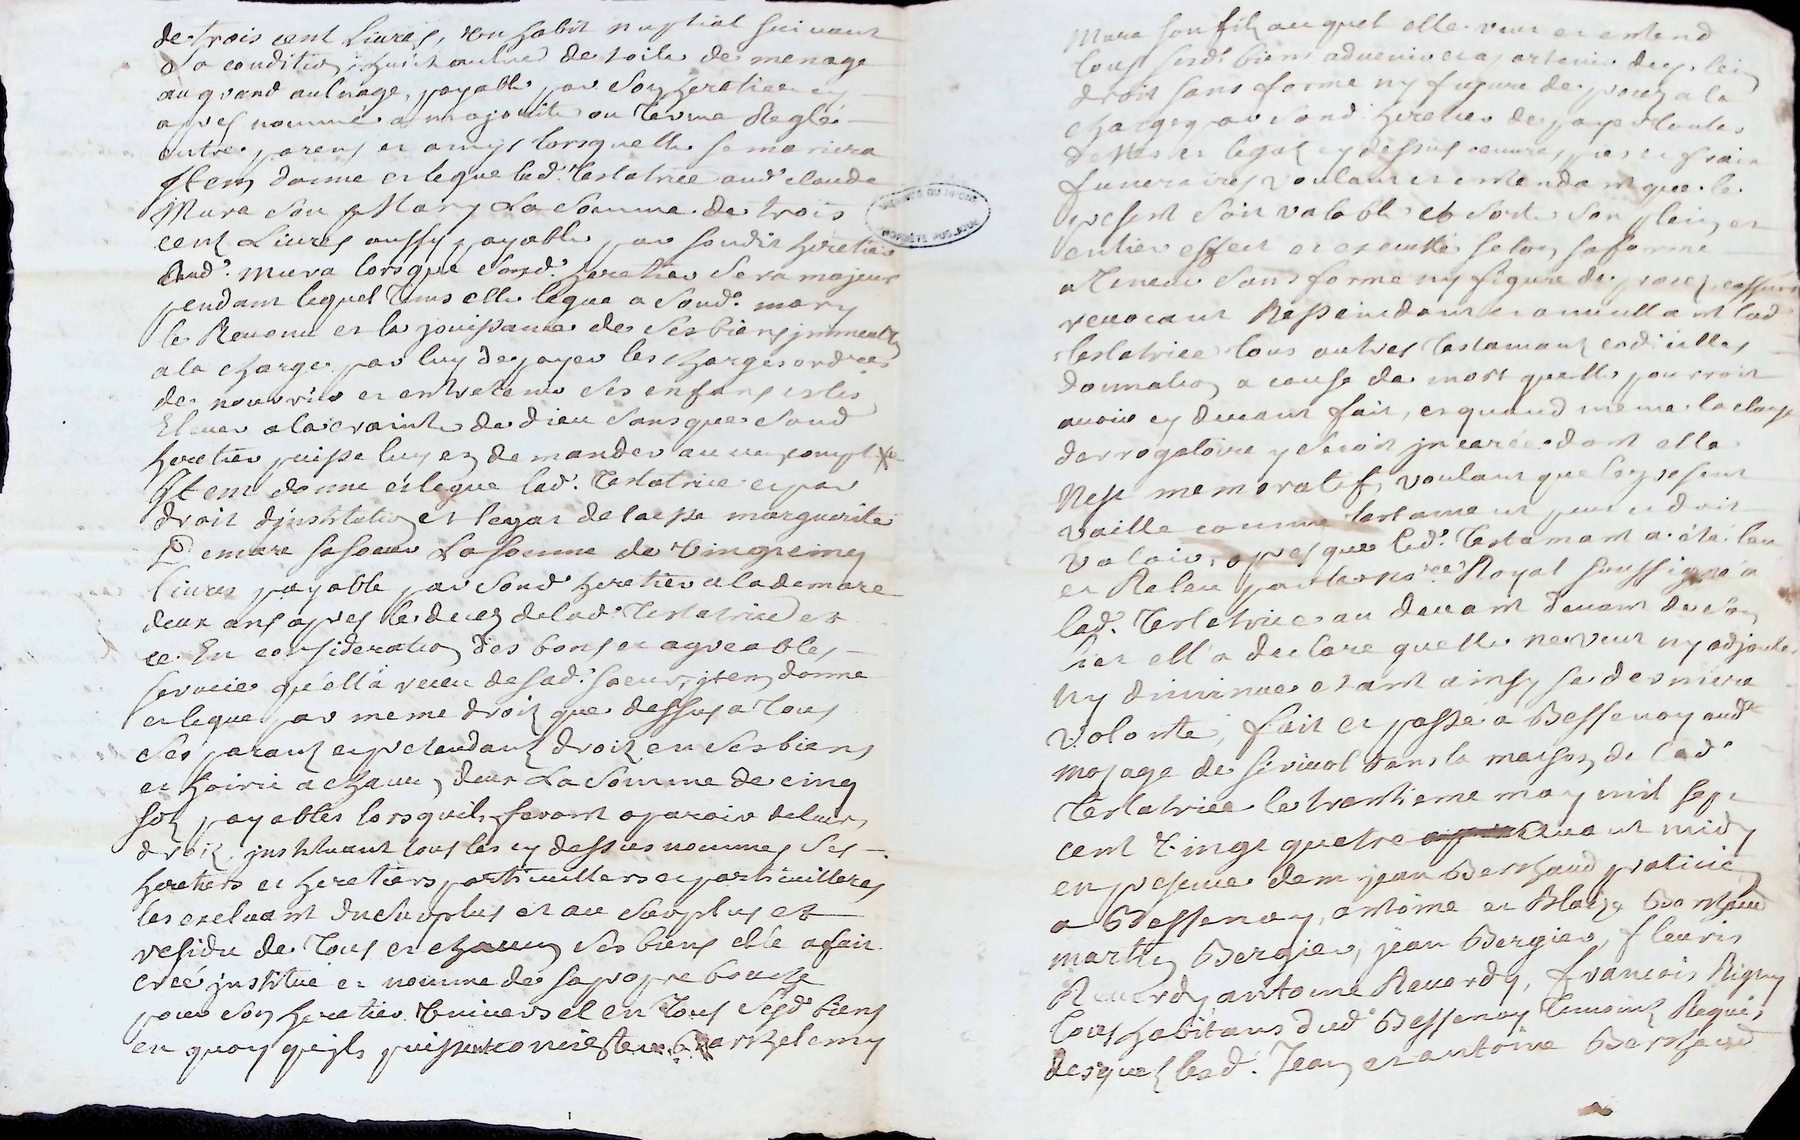 de trois cent Livres, un habit nuptial suivant
Sa condition, huict aulnes de toile de menage
au grand aulnage, payable par son heretier cy
apres nommé a majorité ou terme Reglé
entre parens et amys lorsquelle se mariera
Item donne et legue lad. testatrice aud. claude
Mura son Mary La somme de trois
cent Livres aussy payable par sondit heretier
Aud. Mura lorsque sond. heretier sera majeur
pendant lequel tems elle legue a sond. mary
le Revenu et la jouissance de ses biens immeubles
a la charge par luy de payer les charges ordres
de nourrir et entretenir ses enfans et les
Elever a la crainte de dieu sans que sond
heretier puisse luy en demander aucun compte
Item donne et legue lad. Testatrice et par
droit djnstitution et legat delaisse marguerite
Demare sa soeur La somme de vingt cinq
livres payable par sond heretier a lademare
deux ans apres le decez de lad. testatrice et
ce En consideration des bons et agreables
service qu'ell'a receu de sad. soeur, jtem donne
et legue par meme droit que dessus a tous
ses parans et pretendant droit en ses biens
et hoirie a chacun deux La somme de cinq
solz payables lorsquils feront aparoir de leur
droit, jnstituant tous les cy dessus nommes ses
heretiers et heretiers particulliers et particulieres
les excluant du surplus et au surplus et
residu de tous et chacun ses biens elle a fait
creé jnstitué et nommé de sa propre bouche
pour son heretier universel en tous sesd biens
en quoy qu'jls puissent consister Barthelemy
Mura son fils auquel elle veut et entend
tous sesd. biens advenir et apartenir de plein
droit sans forme ny figure de procez a la
charge par sond. heretier de payer toutes
dettes et legat cy dessus oeuvres pies et frais
funeraires voulant et entendant que le
present soit valable et sorte son plein et
entier effect et executté selon sa forme
et teneur sans forme ny figure de procez, cassant
revocant Rescindant et annullant lad
testatrice tous autres testamant codicilles
donnation a cause de mort quelle pourroit
avoir cy devant fait, et quand meme la clause
derrogatoire y seroit jnserée dont elle
N'est memoratif, voulant que le present
vaille comme testament peut et doit
valoir, apres que led. Testamant a été leu
et Releu par le no.re Royal soussigné a
lad. Testatrice au devant devant de son
lict ell'a declare quelle ne veut ny adjouter
ny diminuer etant ainsy sa derniere
volonté, fait et passé a Bessenay aud.
mosage de sirivol dans la maison de lad.
Testatrice le trentieme may mil sept
cent vingt quatre avant midy
en presence de m. jean Berthaud praticien
a Bessenay, antoine et Blaize Berthaud
martin Bergier, jean Bergier, fleuris
Reverdy antoine Reverdy, francois Rigny
tous habitans dud. Bessenay temoins Requis
desquels led. Jean et antoine Berthaud